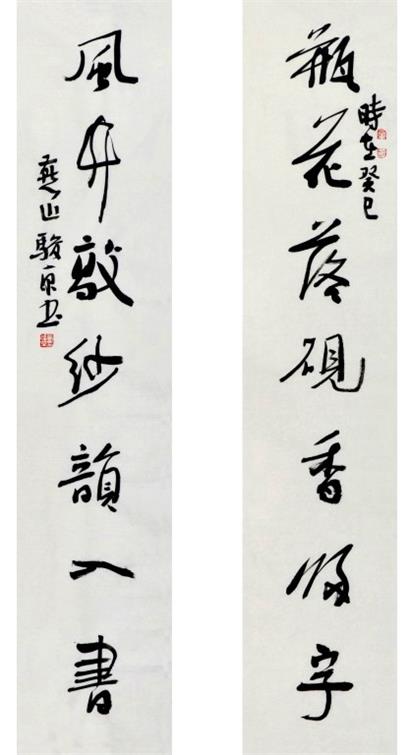 瓶花落硯香歸字
時在癸巳
風竹敲紗韻入書
燕山駿書